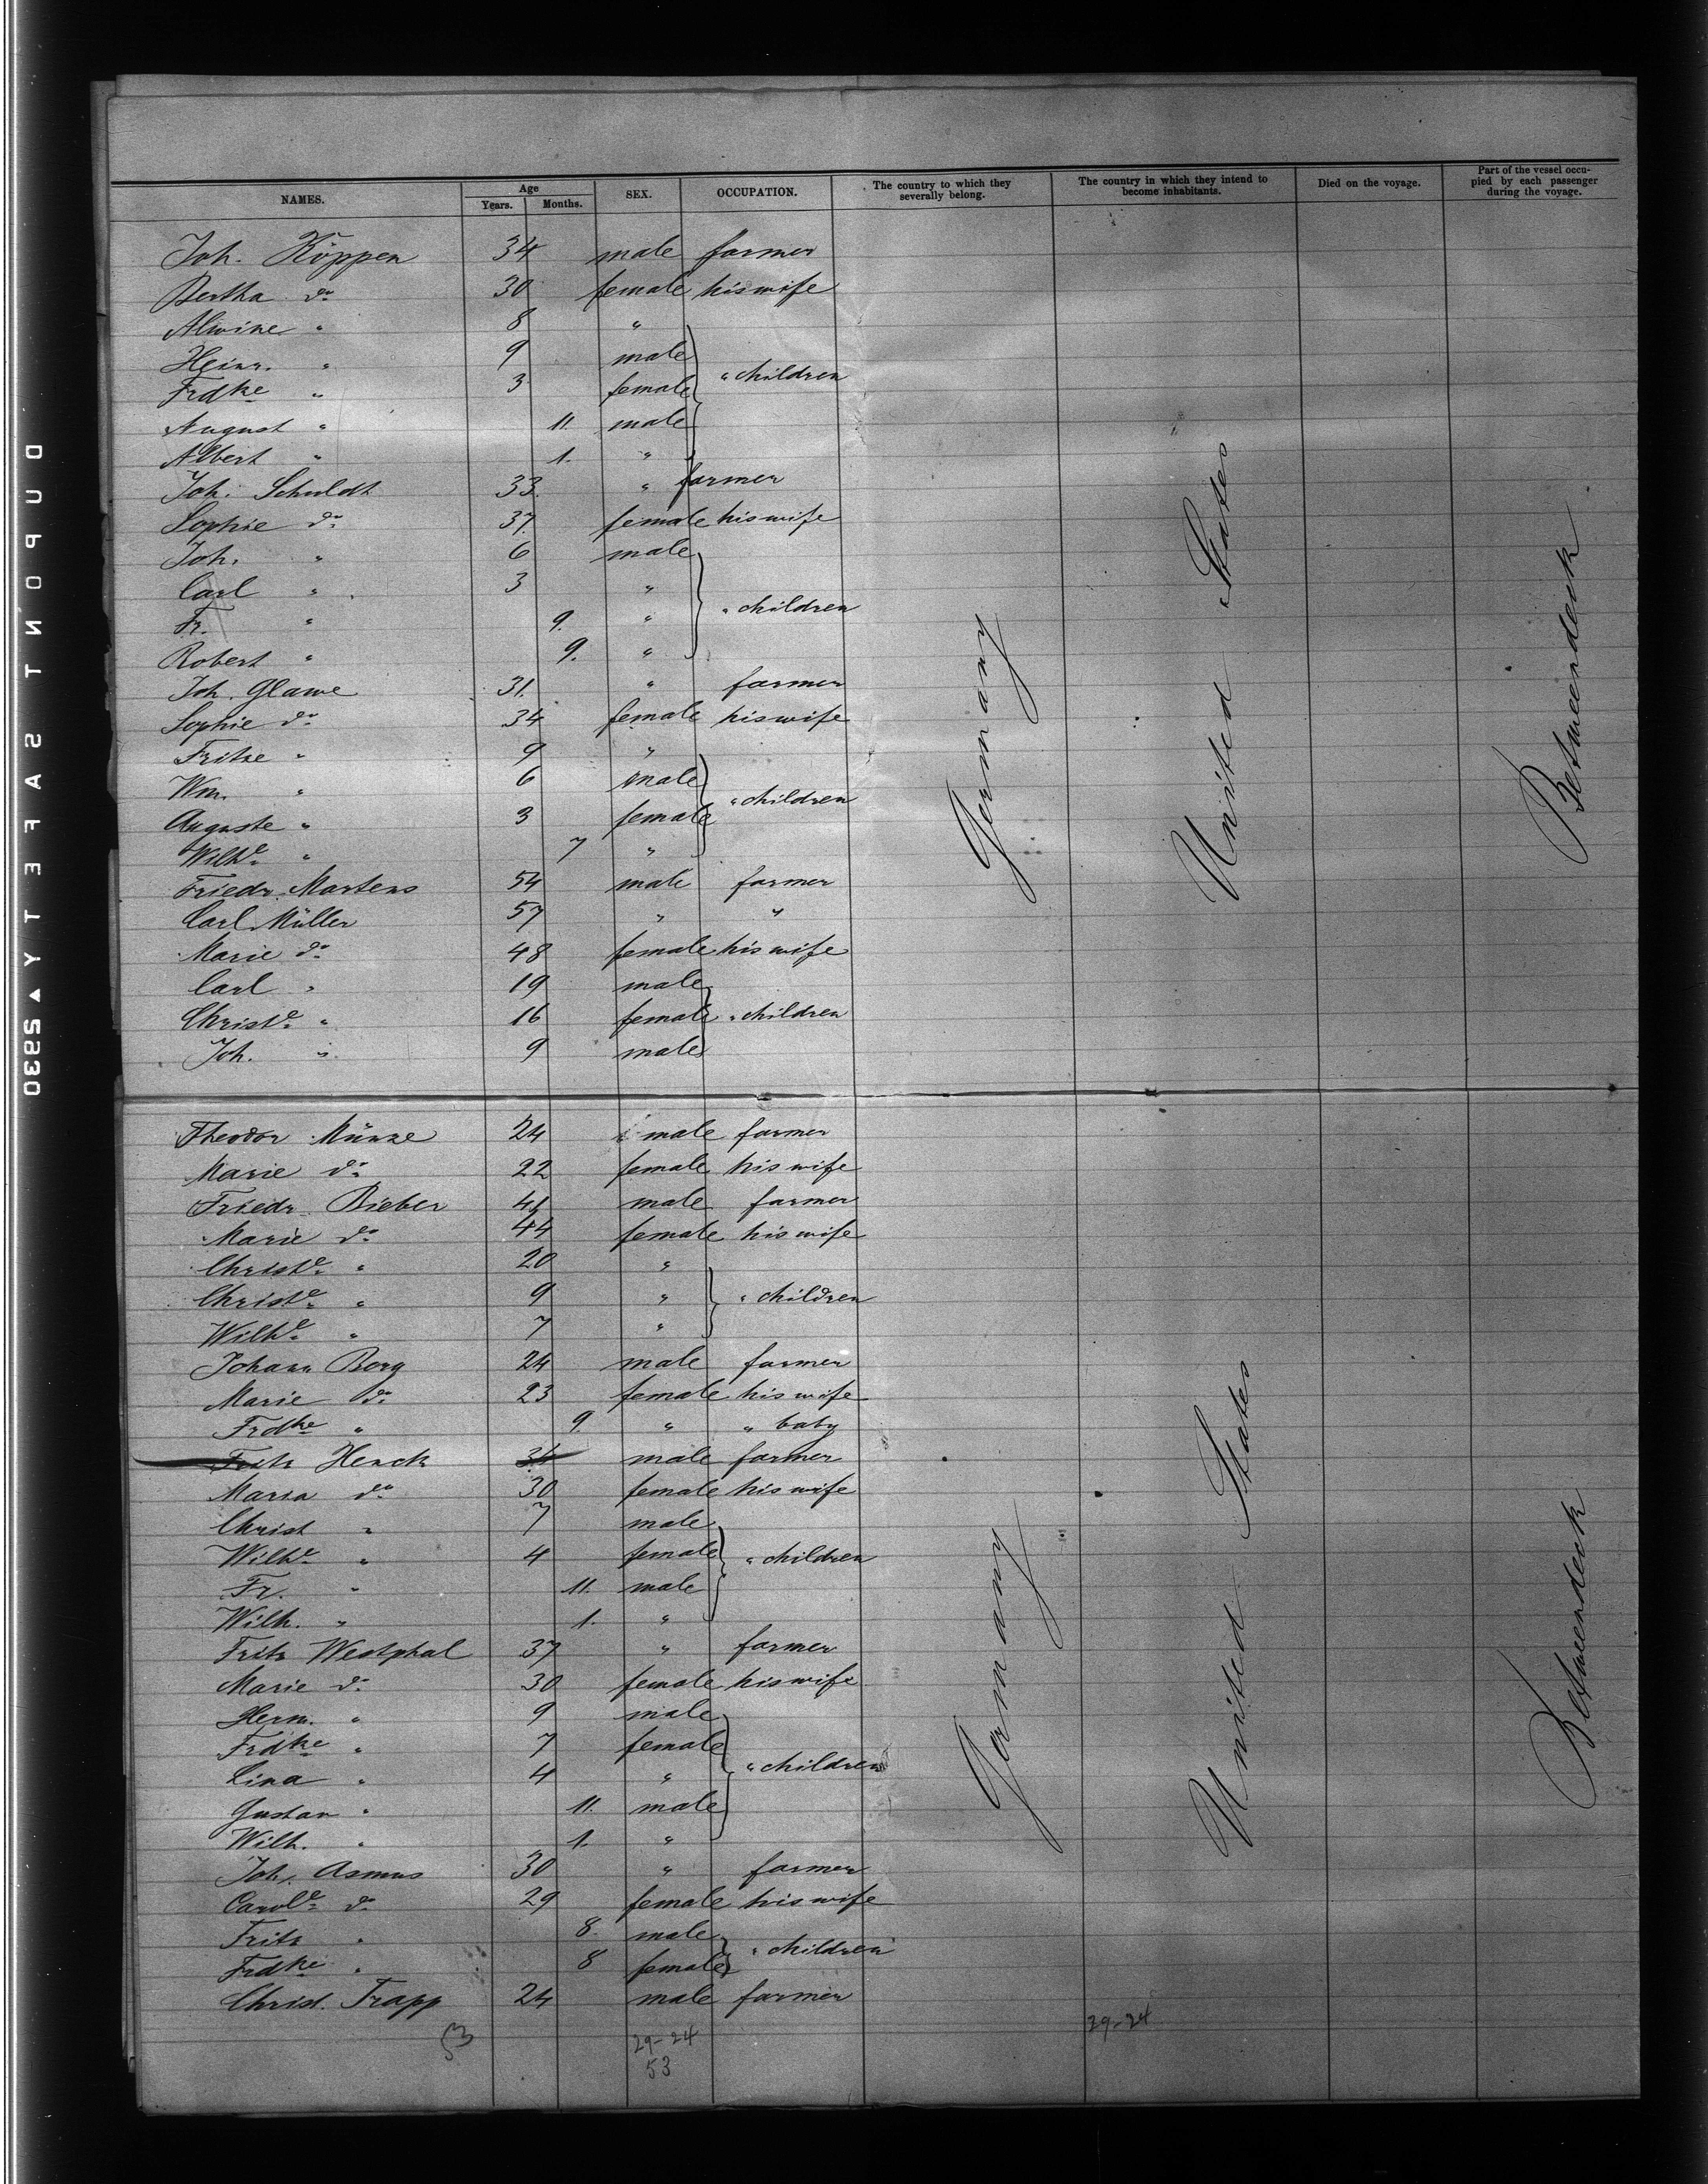 NAMES. Age Years. Months. SEX. OCCUPATION. The country to which they severally belong. The country in which they intend to become inhabitants. Died on the voyage. Part of the vessel occupied by each passenger during the voyage.
Joh. Köppen 34 male farmer
Bertha do 30 female his wife
Alwine " 8 "
Heinr. " 9 male
Frdke " 3 female " children
August " 11. male
Albert " 1. "
Joh. Schuldt 33. " farmer
Sophie do 37. female his wife
Joh. " 6 male
Carl " 3 "
Fr. " 9. " " children
Robert " 9. "
Joh. Glawe 31. " farmer
Sophie do 34 female his wife
Fritze " 9 "
Wm. " 6 male
Auguste " 3 female " children
Wilhe " 7 "
Friedr. Martens 54 male farmer
Carl Müller 57 " "
Marie do 48 female his wife
Carl " 19 male
Christe " 16 female " children
Joh. " 9 male
Germany
United States
Betweendeck
Theodor Münze 24 male farmer
Marie do 22 female his wife
Friedr. Bieber male farmer
Marie do 44 female his wife
Christe " 20 "
Christe " 9 " " children
Wilhe " 7 "
Johann Berg 24 male farmer
Marie do 23 female his wife
Frdke " 9. " " baby
Fritz Henck 34 male farmer
Maria do 30 female his wife
Christ " 7 male
Wilhe " 4 female " children
Fr. " 11. male
Wilh. " 1. "
Fritz Westphal 37 " farmer
Marie do 30 female his wife
Herm. " 9 male
Frdke " 7 female
Lina " 4 " " children
Gustav " 11. male
Wilh. " 1. "
Joh. Asmus 30 " farmer
Carole do 29 female his wife
Fritz " 8. male
Frdke " 8 female " children
Christ. Trapp 24 male farmer
Germany
United States
Betweendeck
53
29-24
53
29-24
DUPONT SAFETY ▲ 2530